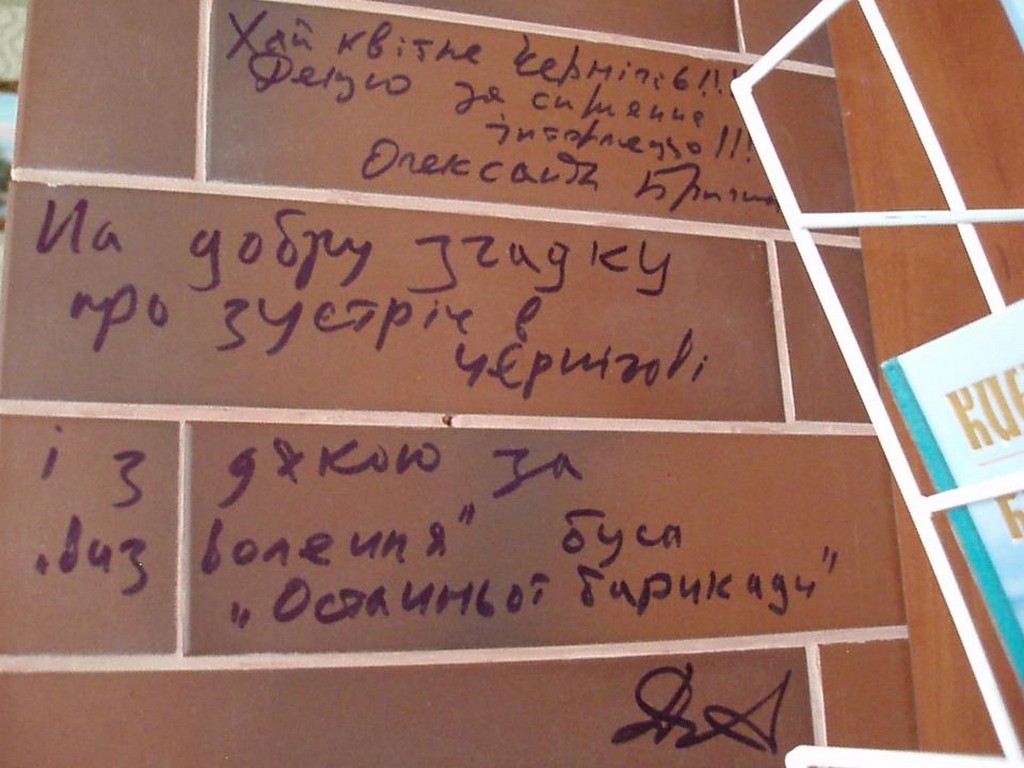 Хай квітне Чернігів!!!
Дякую за смачне
інтермеццо!!!
Олександр
На добру згадку
про зустріч в
Чернігові
і з дякою за
„визволення" буса
„Останньої барикади"